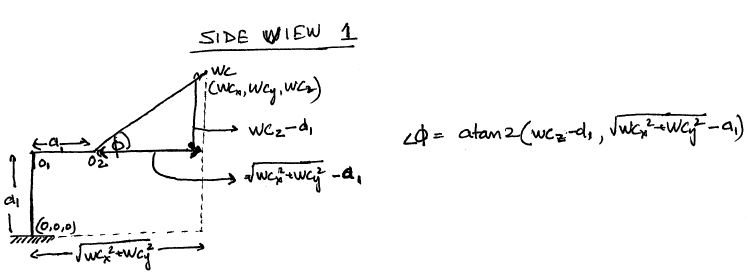 SIDE VIEW 1
WC
(WCx, WCy, WCz)
WCz-d1
a1
O1
O2
ϕ
√WCx²+WCy² - a1
d1
(0,0,0)
√WCx²+WCy²
∠ϕ = atan2(WCz-d1, √WCx²+WCy² - a1)